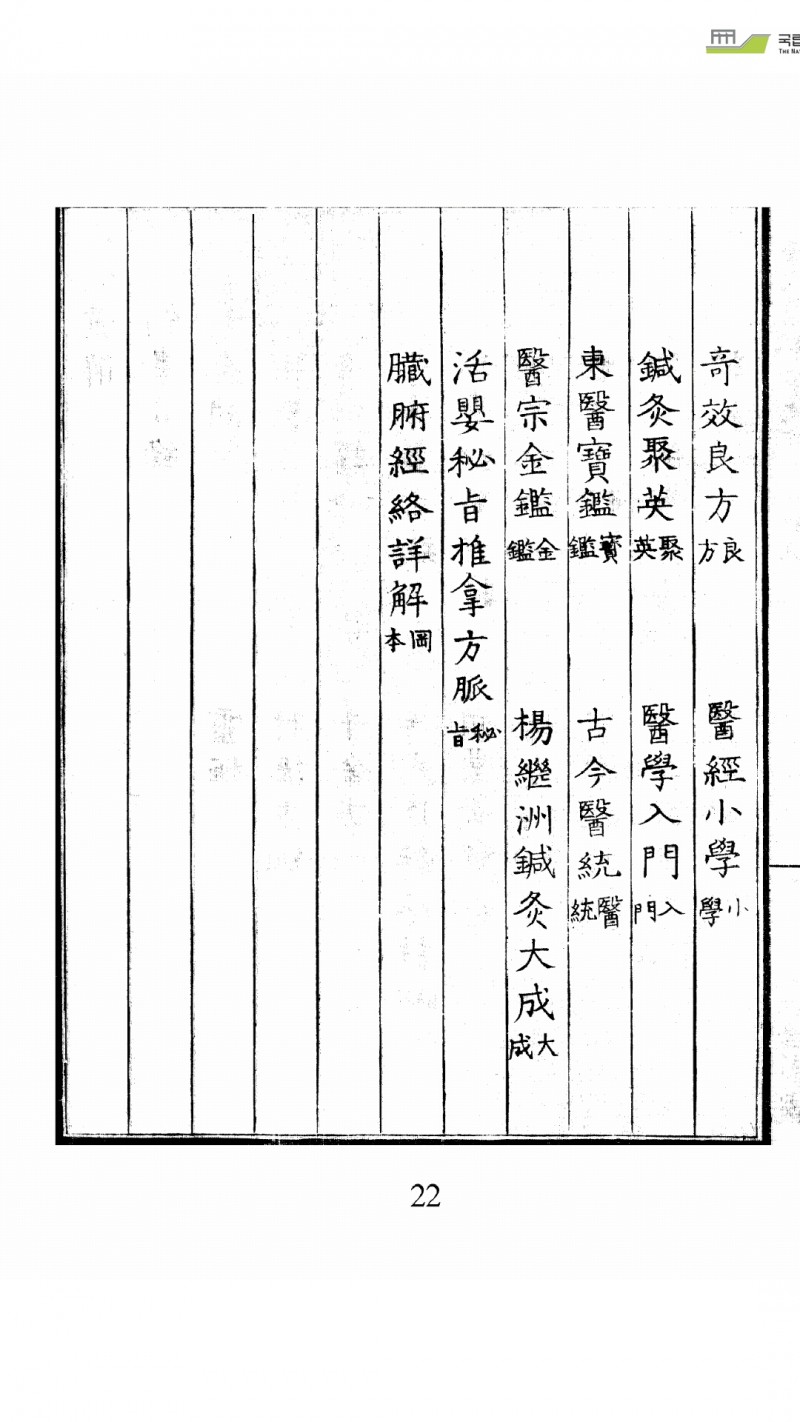 국립
THE NA
奇效良方 良方
醫經小學 小學
鍼灸聚英 聚英
醫學入門 入門
東醫寶鑑 寶鑑
古今醫統 醫統
醫宗金鑑 金鑑
楊繼洲鍼灸大成 大成
活嬰秘旨推拿方脈 秘旨
臟腑經絡詳解 岡本
22